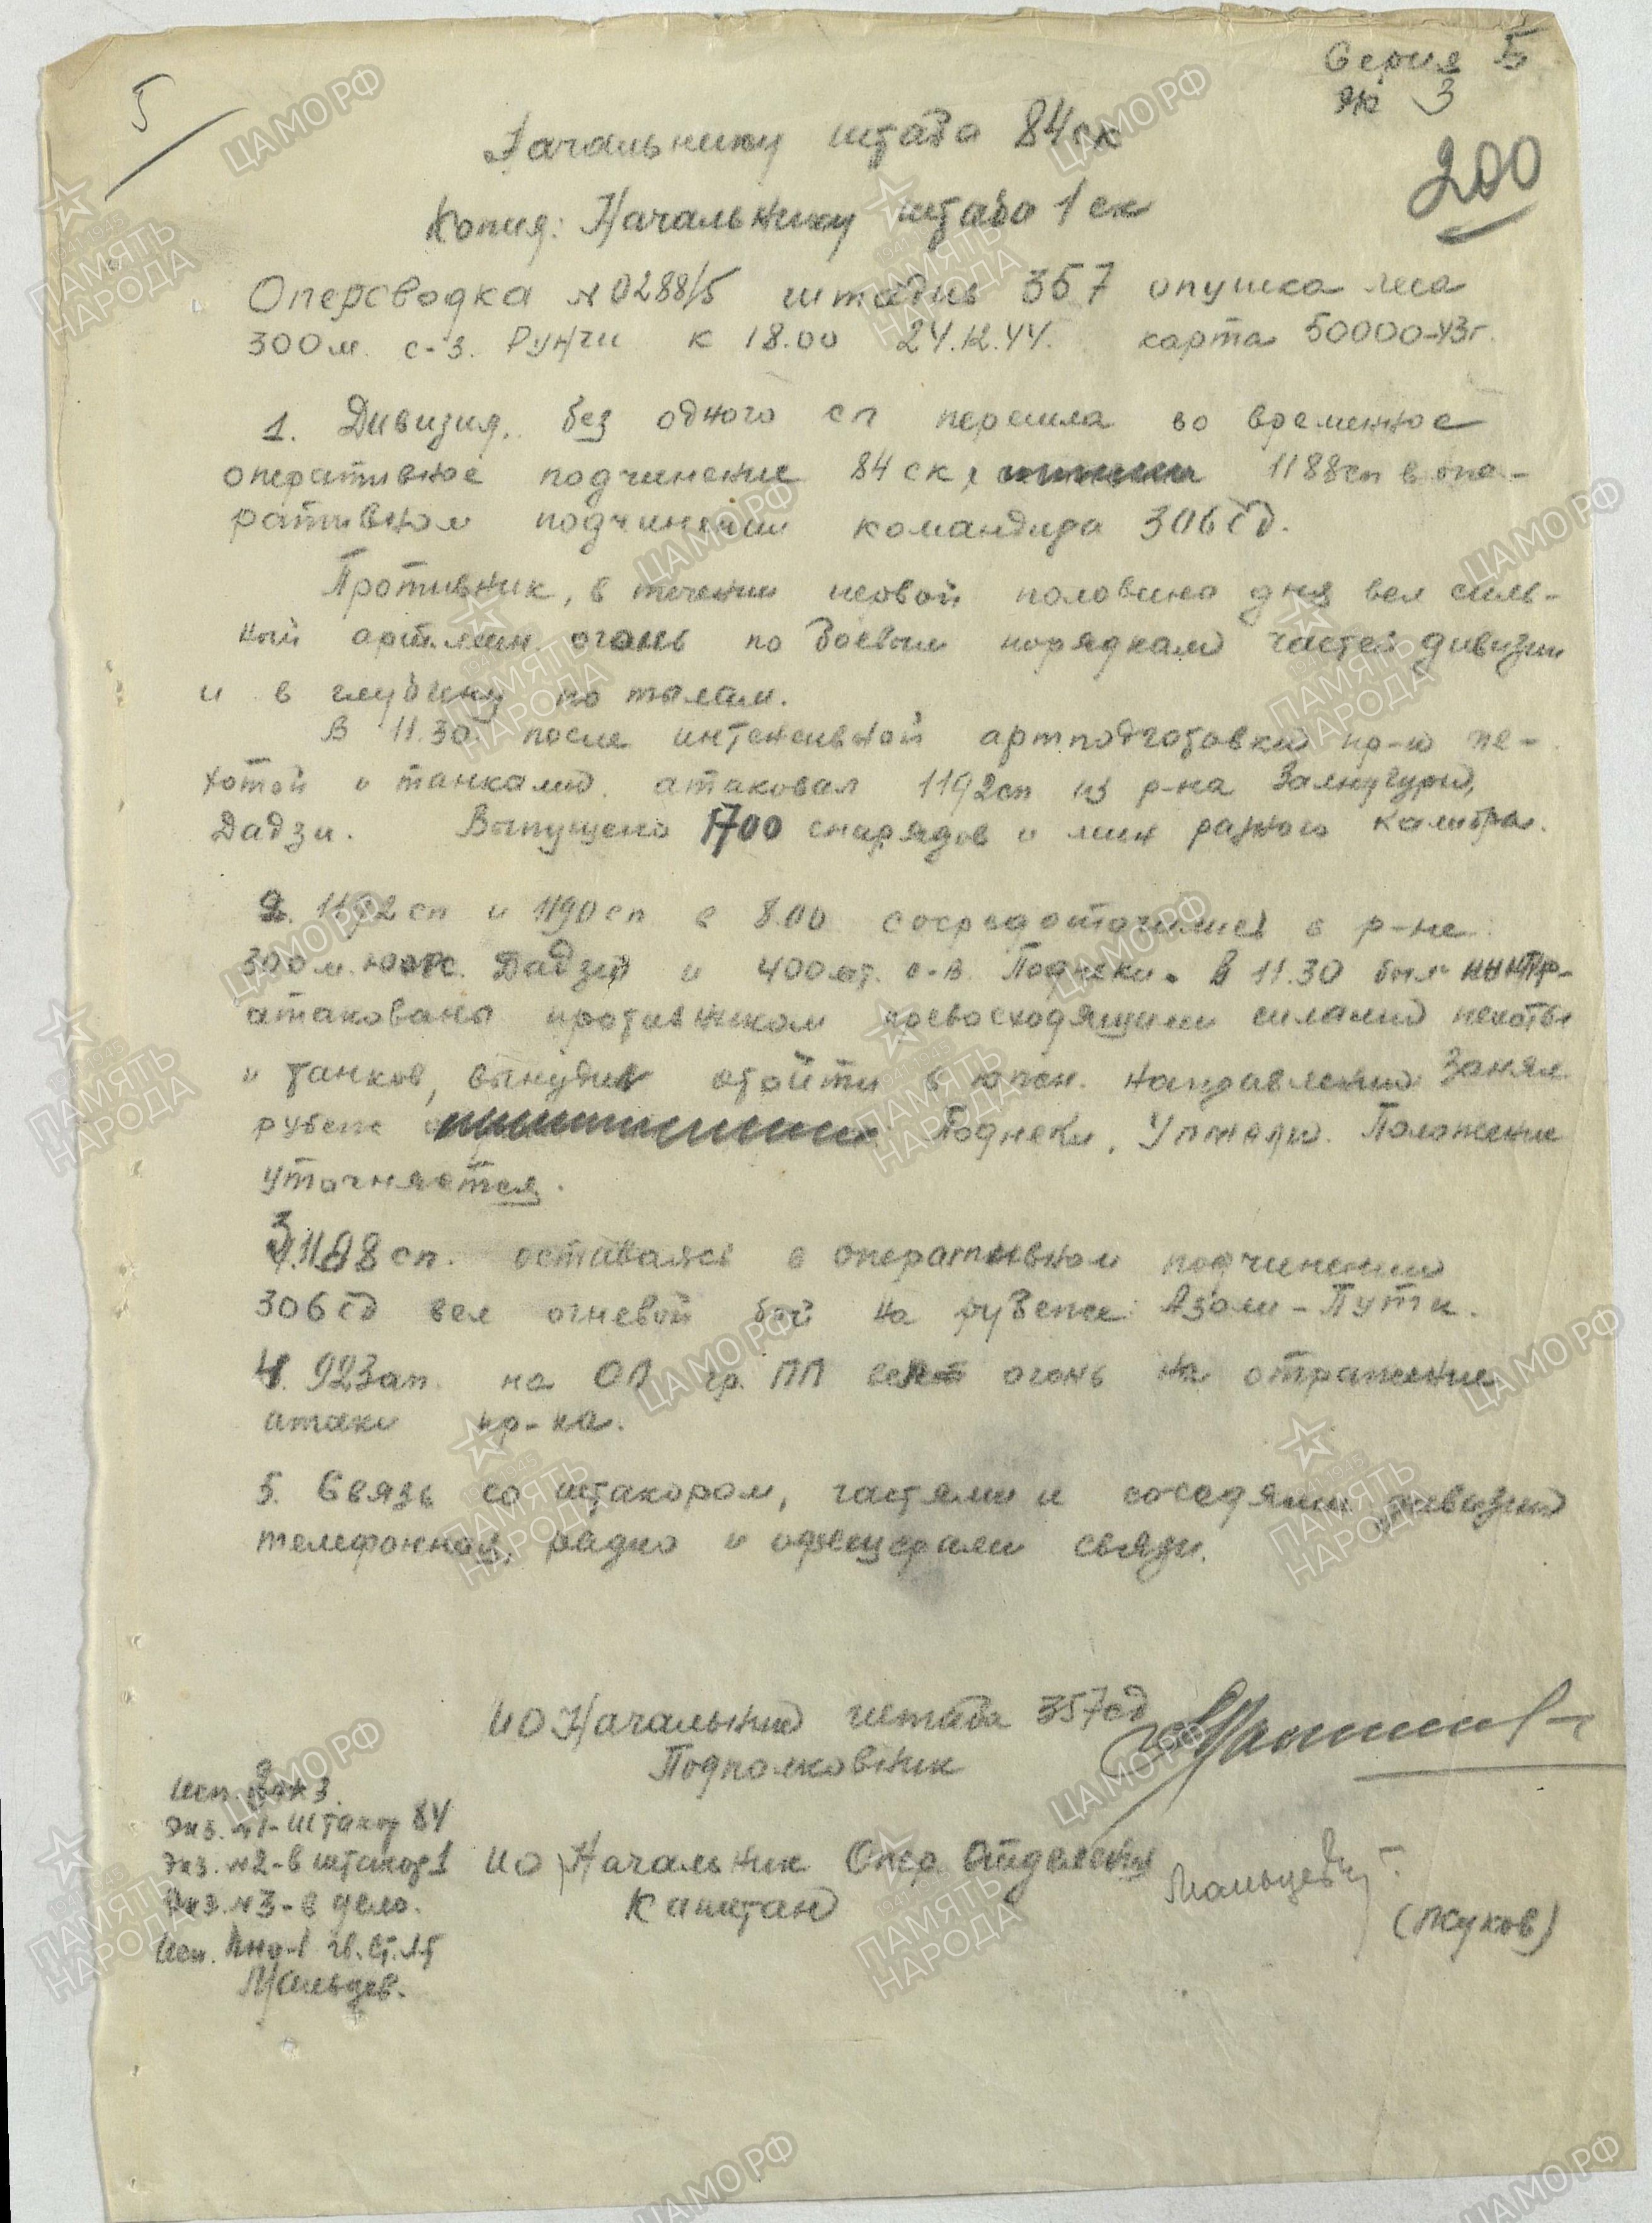 Серия 5
№ 3
5
200
Начальнику штаба 84ск
Копия: Начальнику штаба 1 ск
Оперсводка №0288/5 штадив 357 опушка леса
300м. с-з. Рунчи к 18.00 24.12.44. карта 50000-43г.
1. Дивизия, без одного сп перешла во временное
оперативное подчинение 84 ск, 1188сп в опе-
ративном подчинении командира 306сд.
Противник, в течении первой половины дня вел силь-
ный огонь по боевым порядкам частей дивизии
и в глубину по тылам.
В 11.30 после интенсивной артподготовки пр-к пе-
хотой и танками атаковал 1192сп из р-на
Дадзи. Выпущено 1700 снарядов и мин разного калибра.
2. 1192сп и 1190сп к 8.00 сосредоточились в р-не
300м. Дадзи и 400мт. с-в. Поднеки. в 11.30 был контр-
атакованы противником превосходящими силами пехоты
и танков, вынудив отойти в направлении Занял
рубеж Поднеки, Положение
уточняется.
3. 1188сп. оставаясь в оперативном подчинении
306сд вел огневой бой на рубеже Азоли-Путн.
4. 923ап. на ОП гр. ПП вел огонь на отражение
атаки пр-ка.
5. Связь со штакором, частями и соседями дивизии
телефонная, радио и офицерами связи.
ИО Начальник штаба 357сд
Подполковник
ИО Начальник Опер. Отделения
Капитан
Мальцев
(Жуков)
Исп. 3
Экз. №1-Штакор 84
Экз. №2-в штакор 1
Экз. №3-в дело.
Исп.
Мальцев.
ЦАМО.РФ
ПАМЯТЬ
НАРОДА